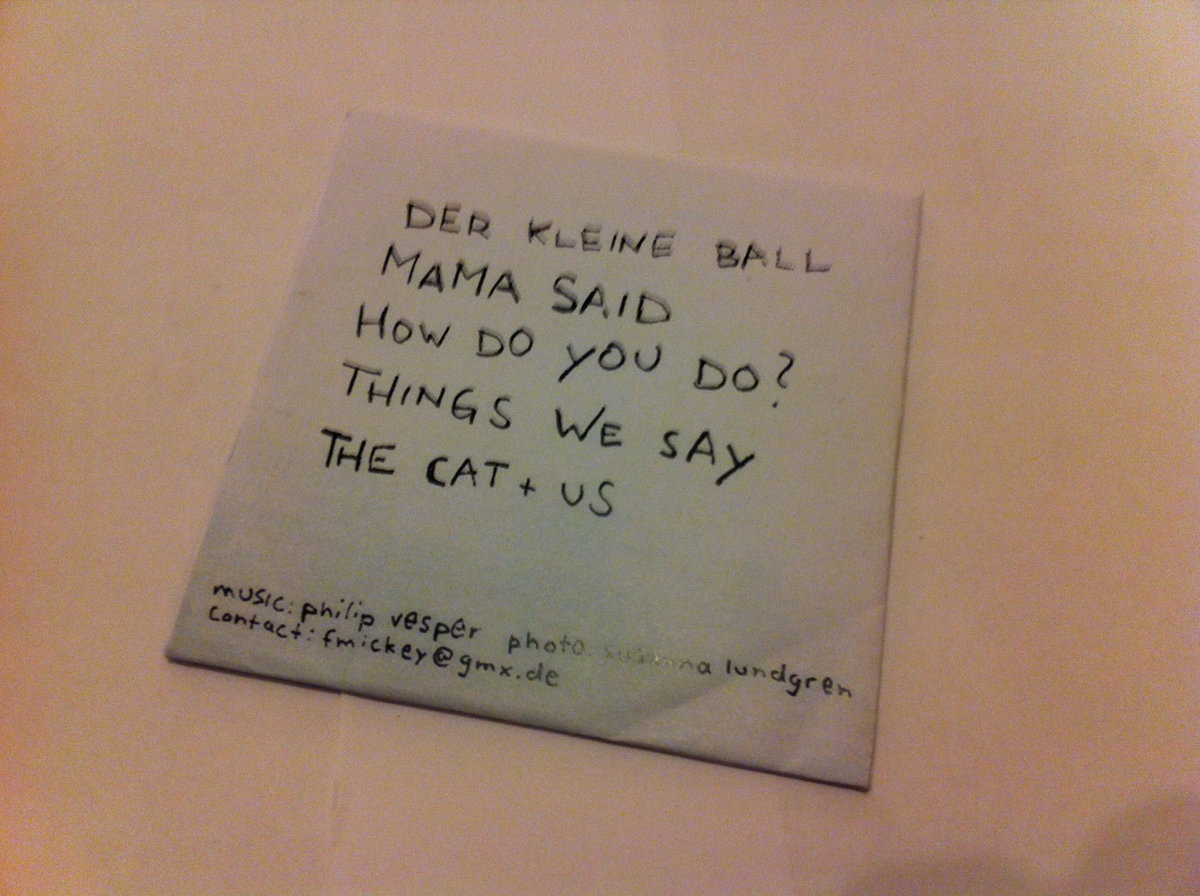 DER KLEINE BALL
MAMA SAID
HOW DO YOU DO?
THINGS WE SAY
THE CAT + US
music: philip vesper photo: susanna lundgren
contact: fmickey@gmx.de